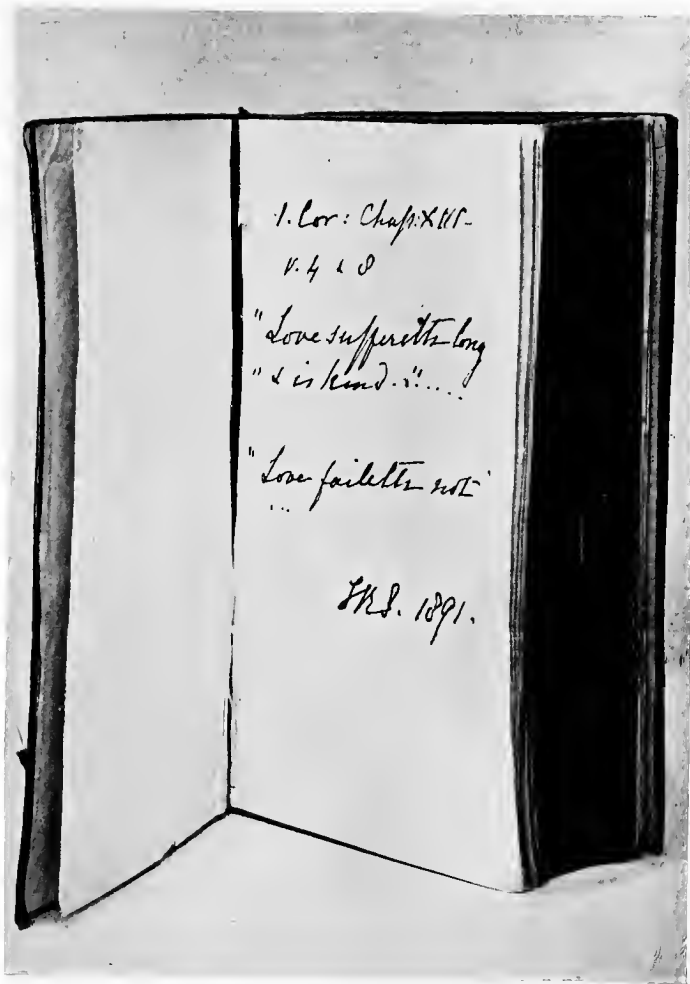 1. Cor: Chap: XIII-
v. 4 & 8
"Love suffereth long
"& is kind. ".....
"Love faileth not"
...
1891.